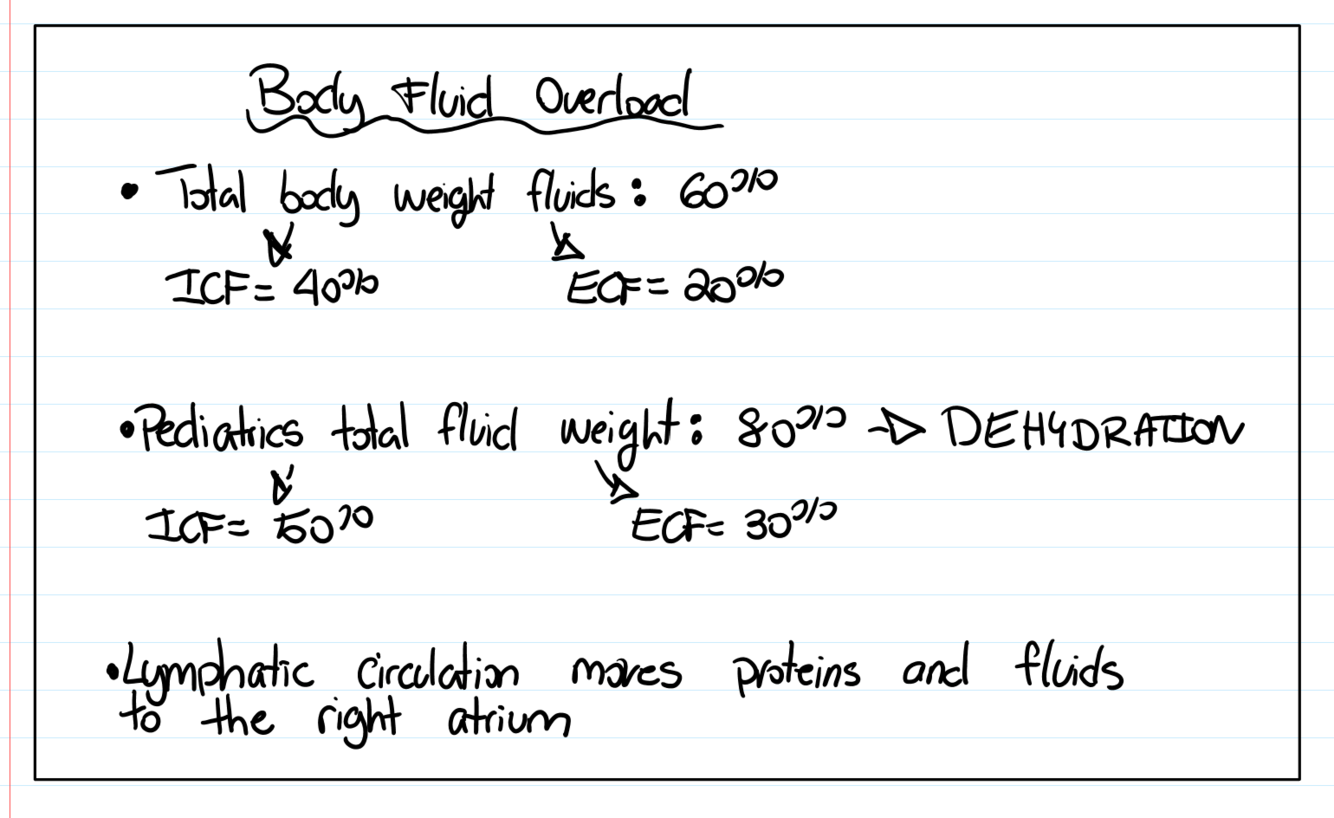 Body Fluid Overload
• Total body weight fluids: 60%
ICF = 40% ECF = 20%
• Pediatrics total fluid weight: 80% → DEHYDRATION
ICF = 50% ECF = 30%
• Lymphatic circulation moves proteins and fluids
to the right atrium